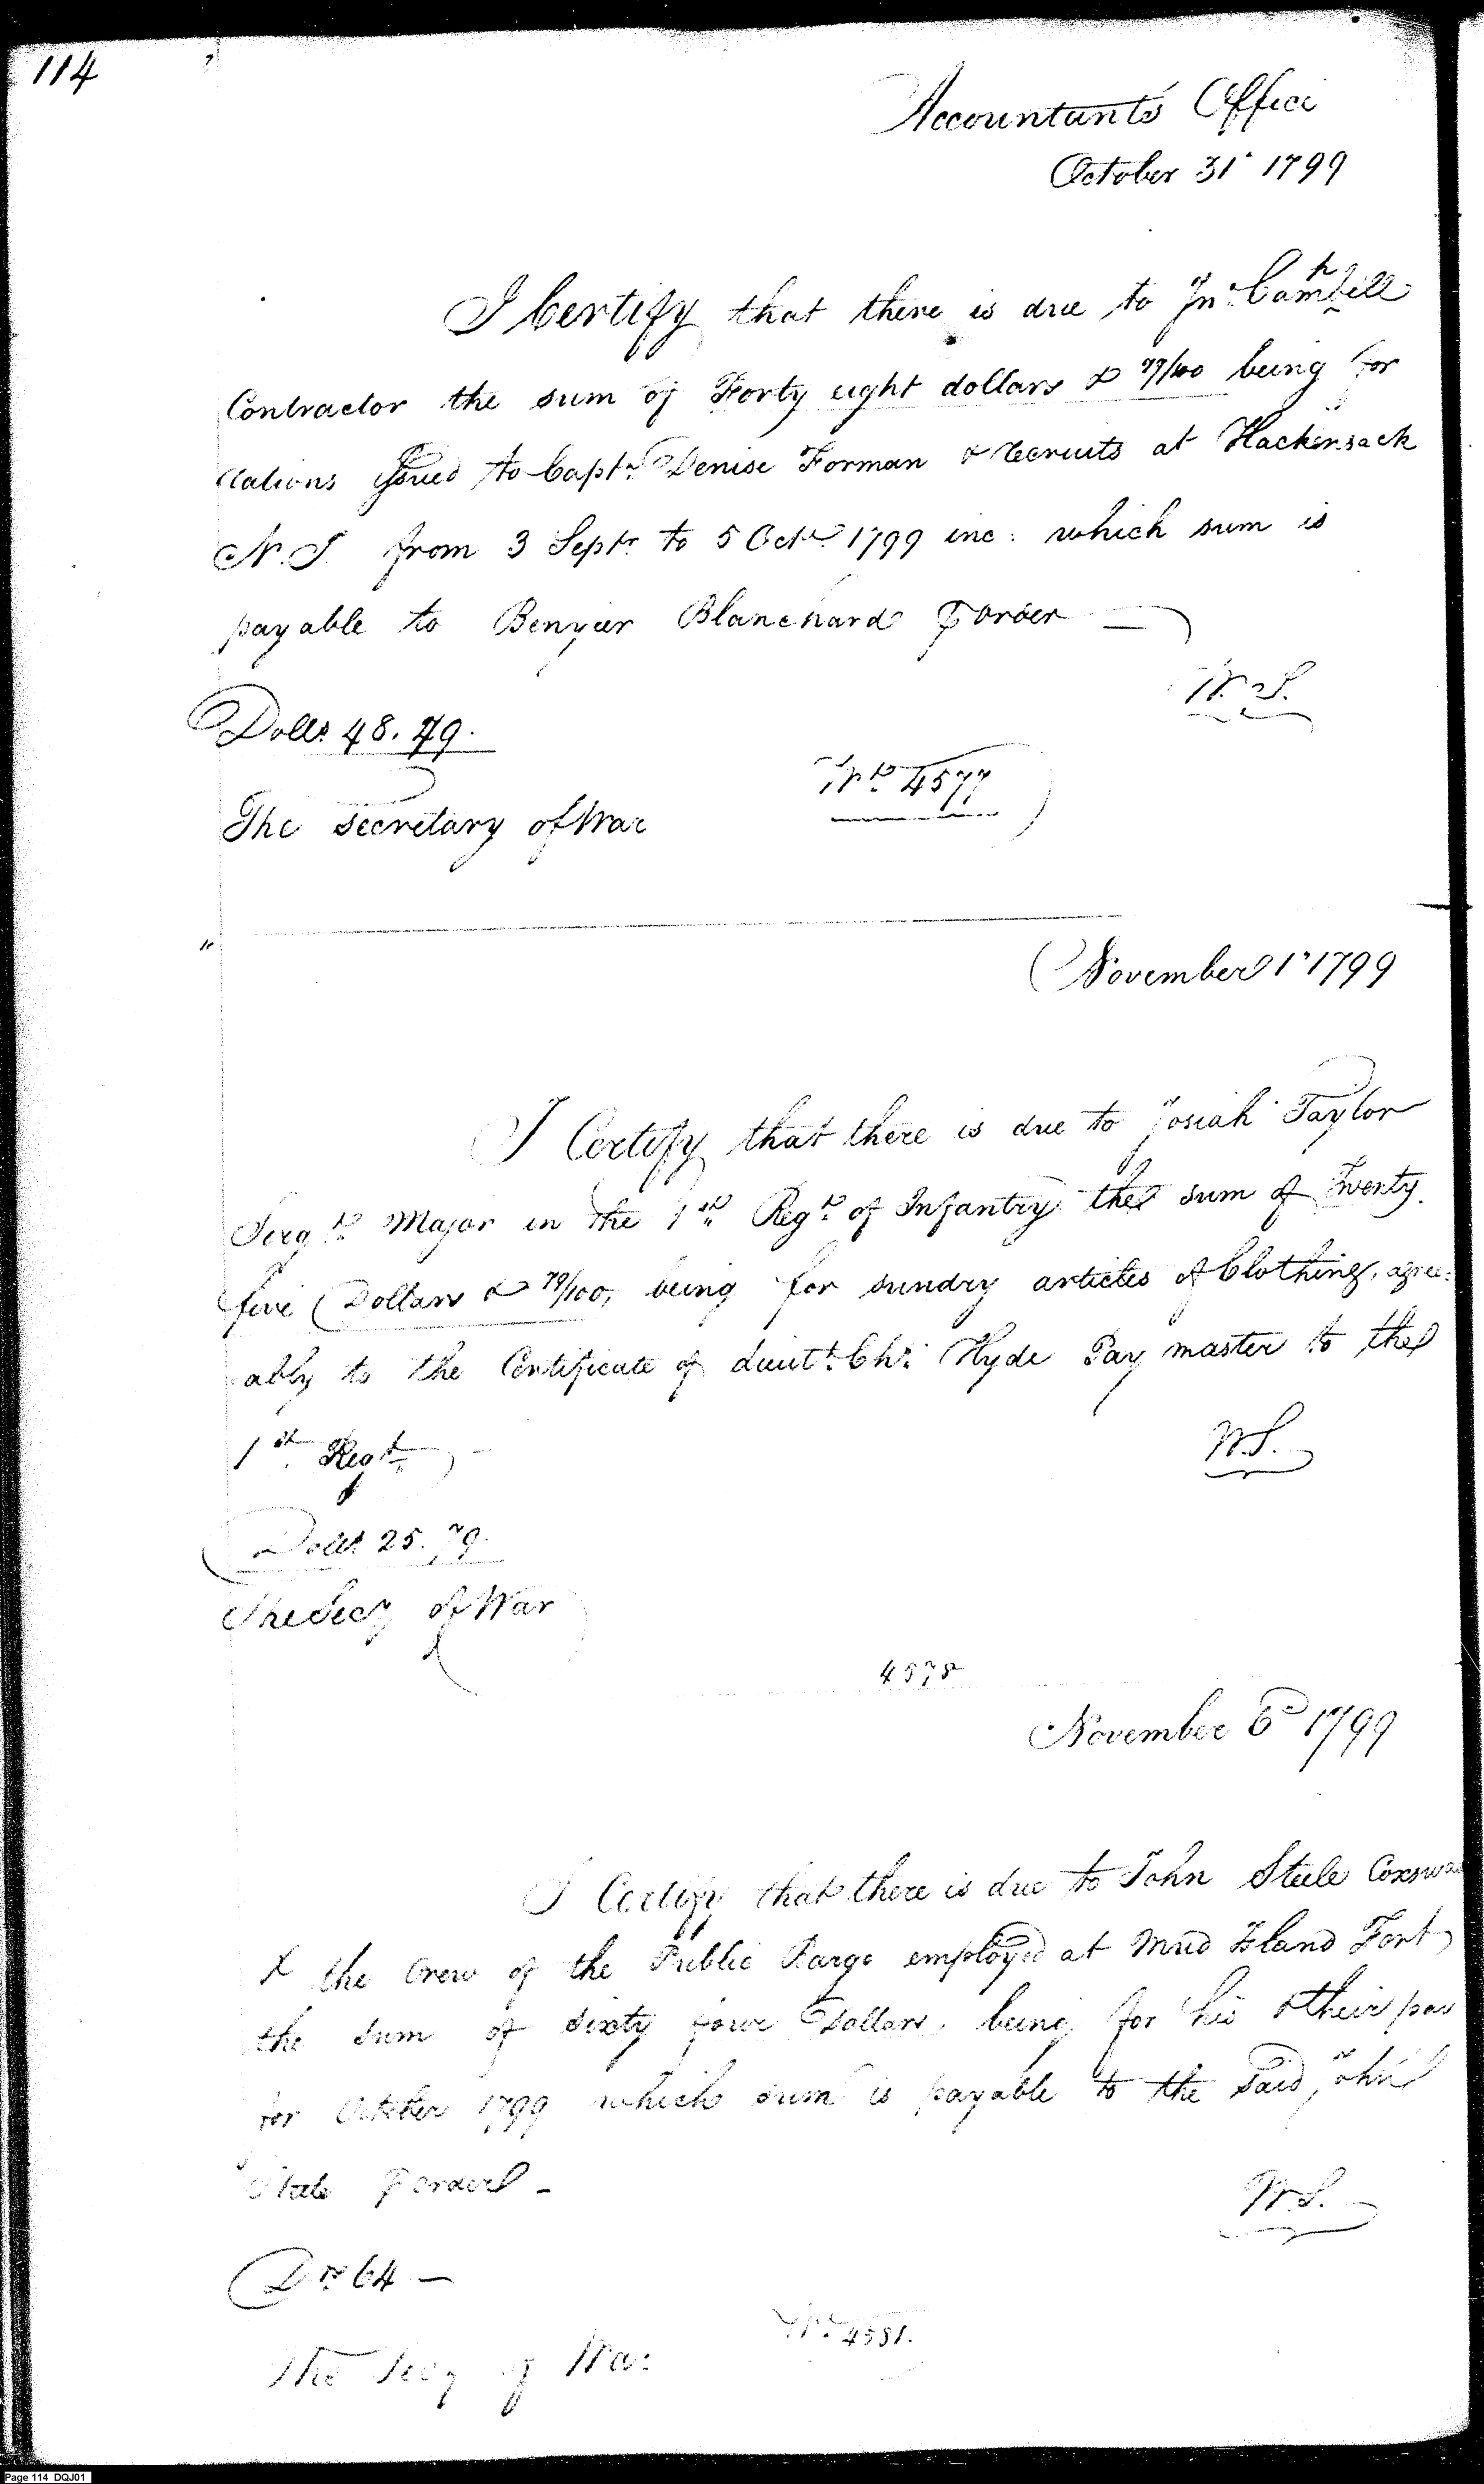 114
Accountants Office
October 31st 1799
I Certify that there is due to Jno. Campbell
Contractor the sum of Forty eight dollars & 79/100 being for
rations issued to Capt. Denise Forman & recruits at Hackensack
N.J. from 3 Septr. to 5 Octr. 1799 inc: which sum is
payable to Benjier Blanchard or order
W.S.
Dolls. 48.79.
Wt. 4577
The Secretary of War
November 1st 1799
I Certify that there is due to Josiah Taylor
Sergt. Major in the 1st Regt. of Infantry the sum of Twenty
five Dollars & 79/100, being for sundry articles of Clothing, agree=
ably to the Certificate of Lieutt. Chs. Hyde Pay master to the
1st Regt.
W.S.
Dolls. 25.79.
The Secy of War
4578
November 6th 1799
I Certify that there is due to John Steele Coxswa
& the Crew of the Public Barge employed at Mud Island Fort
the sum of sixty four Dollars, being for his & their pay
for October 1799 which sum is payable to the said John
Steele or order -
W.S.
Drs. 64 -
Wt. 4581.
The Secy of War
Page 114 DQJ01